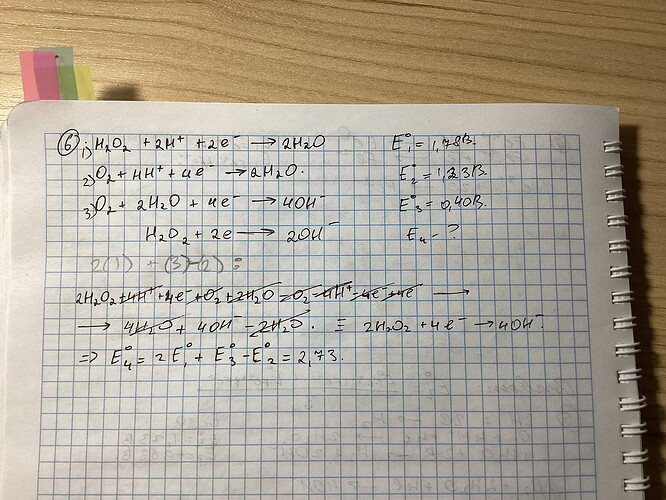 ⑥ 1) H₂O₂ + 2H⁺ + 2e⁻ → 2H₂O E₁° = 1,78В.
2) O₂ + 4H⁺ + 4e⁻ → 2H₂O. E₂° = 1,23В.
3) O₂ + 2H₂O + 4e⁻ → 4OH⁻ E₃° = 0,40В.
H₂O₂ + 2e → 2OH⁻ E₄ - ?
2(1) + (3)-(2) :
2H₂O₂ + 4H⁺ + 4e⁻ + O₂ + 2H₂O - O₂ - 4H⁺ - 4e⁻ + 4e →
→ 4H₂O + 4OH⁻ - 2H₂O. ≡ 2H₂O₂ + 4e⁻ → 4OH⁻.
=> E₄° = 2E₁° + E₃° - E₂° = 2,73.